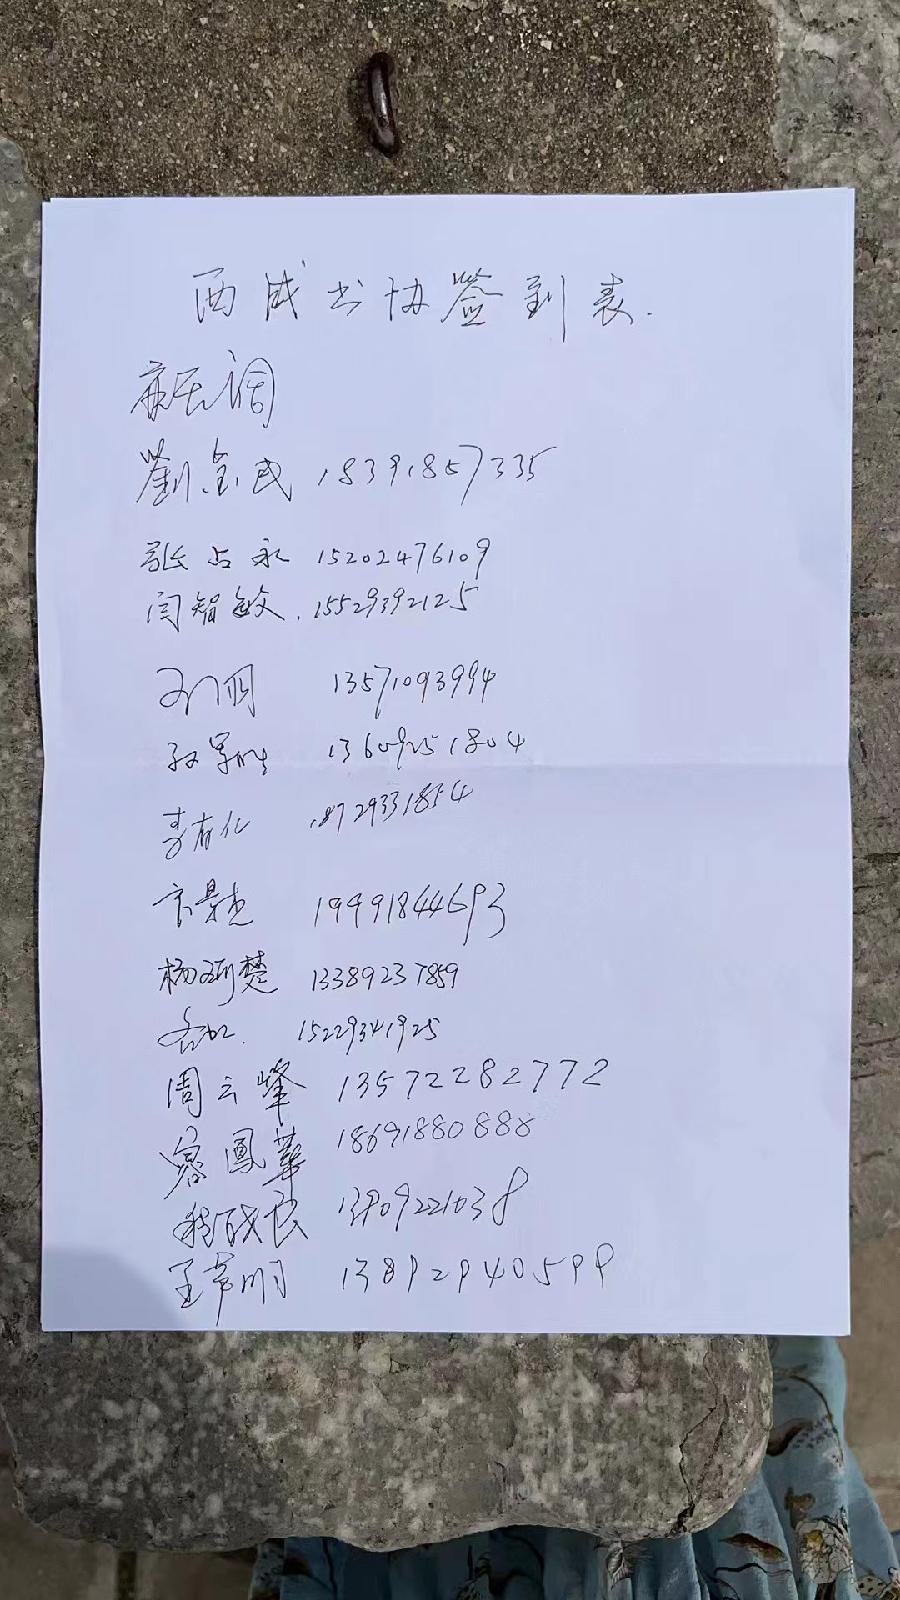 西咸书协签到表.
劉金成 18391857335
张占永 15202476109
闫智敏. 15529392125
13571093994
13609251804
李有化 18729331854
卞景 19991844693
杨珂楚 13389237859
15229341925
周云峰 13572282772
鳳華 18691880888
程战民 13709221038
王常明 13892940599